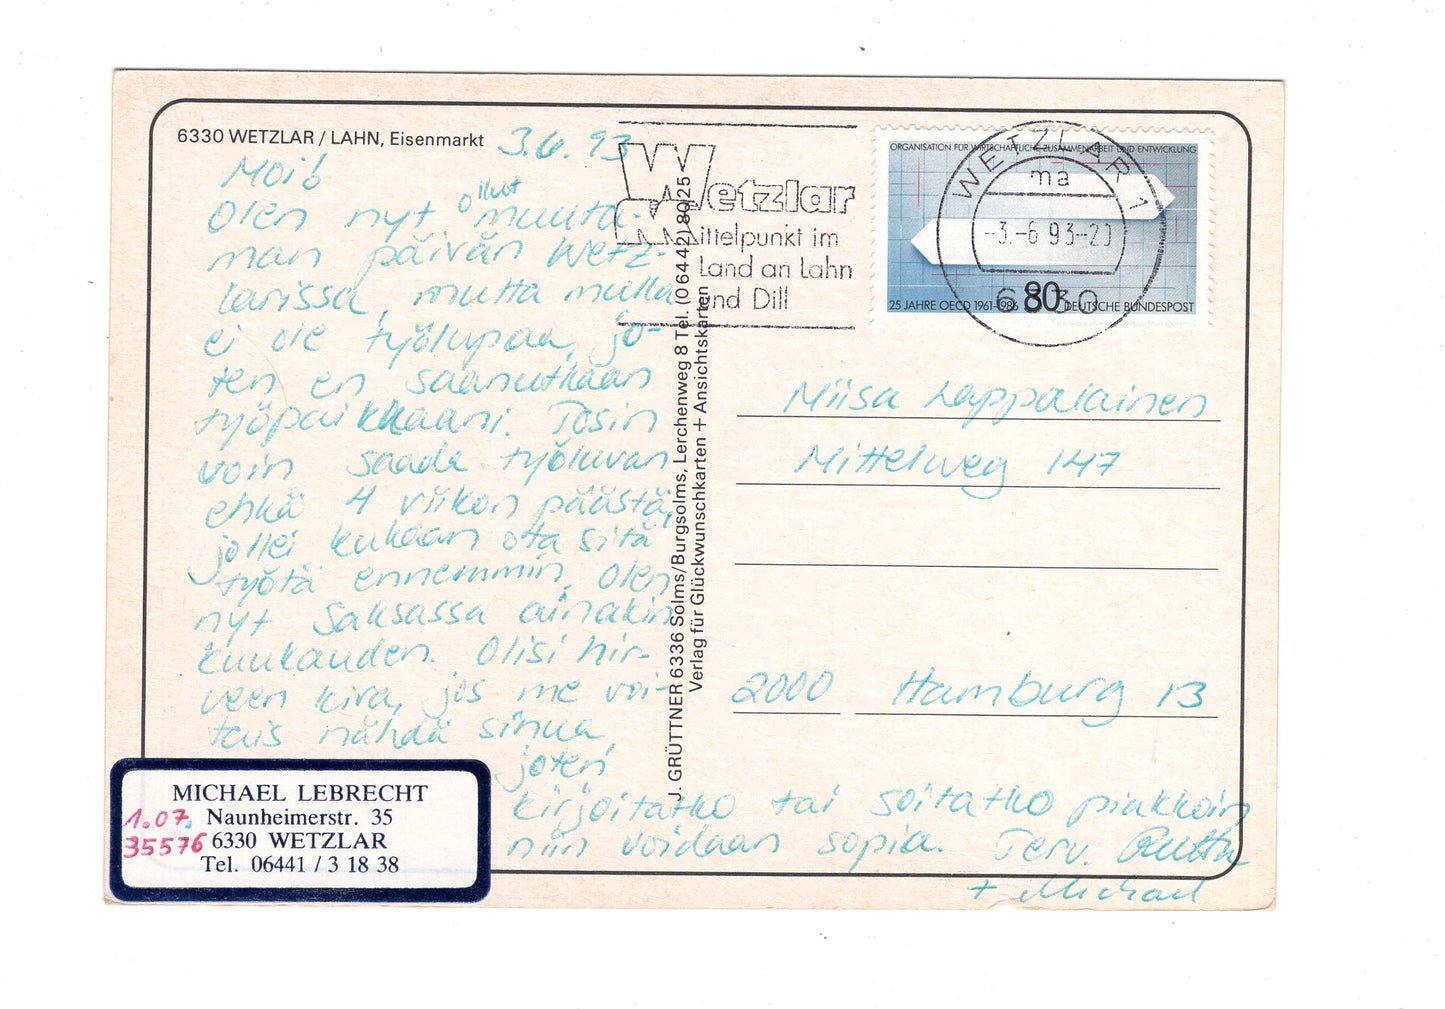 6330 WETZLAR / LAHN, Eisenmarkt
3.6.93
Moi!
Olen nyt ollut muuta-
man päivän Wetz-
larissa, mutta mulla
ei ole työlupaa, jo-
ten en saanutkaan
työpaikkaani. Tosin
voin saada työluvan
ehkä 4 viikon päästä,
jollei kukaan ota sitä
työtä ennemmin, Olen
nyt Saksassa ainakin
kuukauden. Olisi hir-
veen kiva, jos me voi-
tais nähdä sinua,
joten
kirjoitatko tai soitatko piakkoin
niin voidaan sopia. Terv. Ruttu
+ Michael
MICHAEL LEBRECHT
1.07. Naunheimerstr. 35
35576 6330 WETZLAR
Tel. 06441 / 3 18 38
J. GRÜTTNER 6336 Solms/Burgsolms, Lerchenweg 8 Tel. (06442) 8025
Verlag für Glückwunschkarten + Ansichtskarten
Wetzlar
Mittelpunkt im
Land an Lahn
und Dill
ORGANISATION FÜR WIRTSCHAFTLICHE ZUSAMMENARBEIT UND ENTWICKLUNG
25 JAHRE OECD 1961-1986 80 DEUTSCHE BUNDESPOST
WETZLAR 1
ma
-3.-6 93--20
6330
Miisa Lappalainen
Mittelweg 147
2000 Hamburg 13